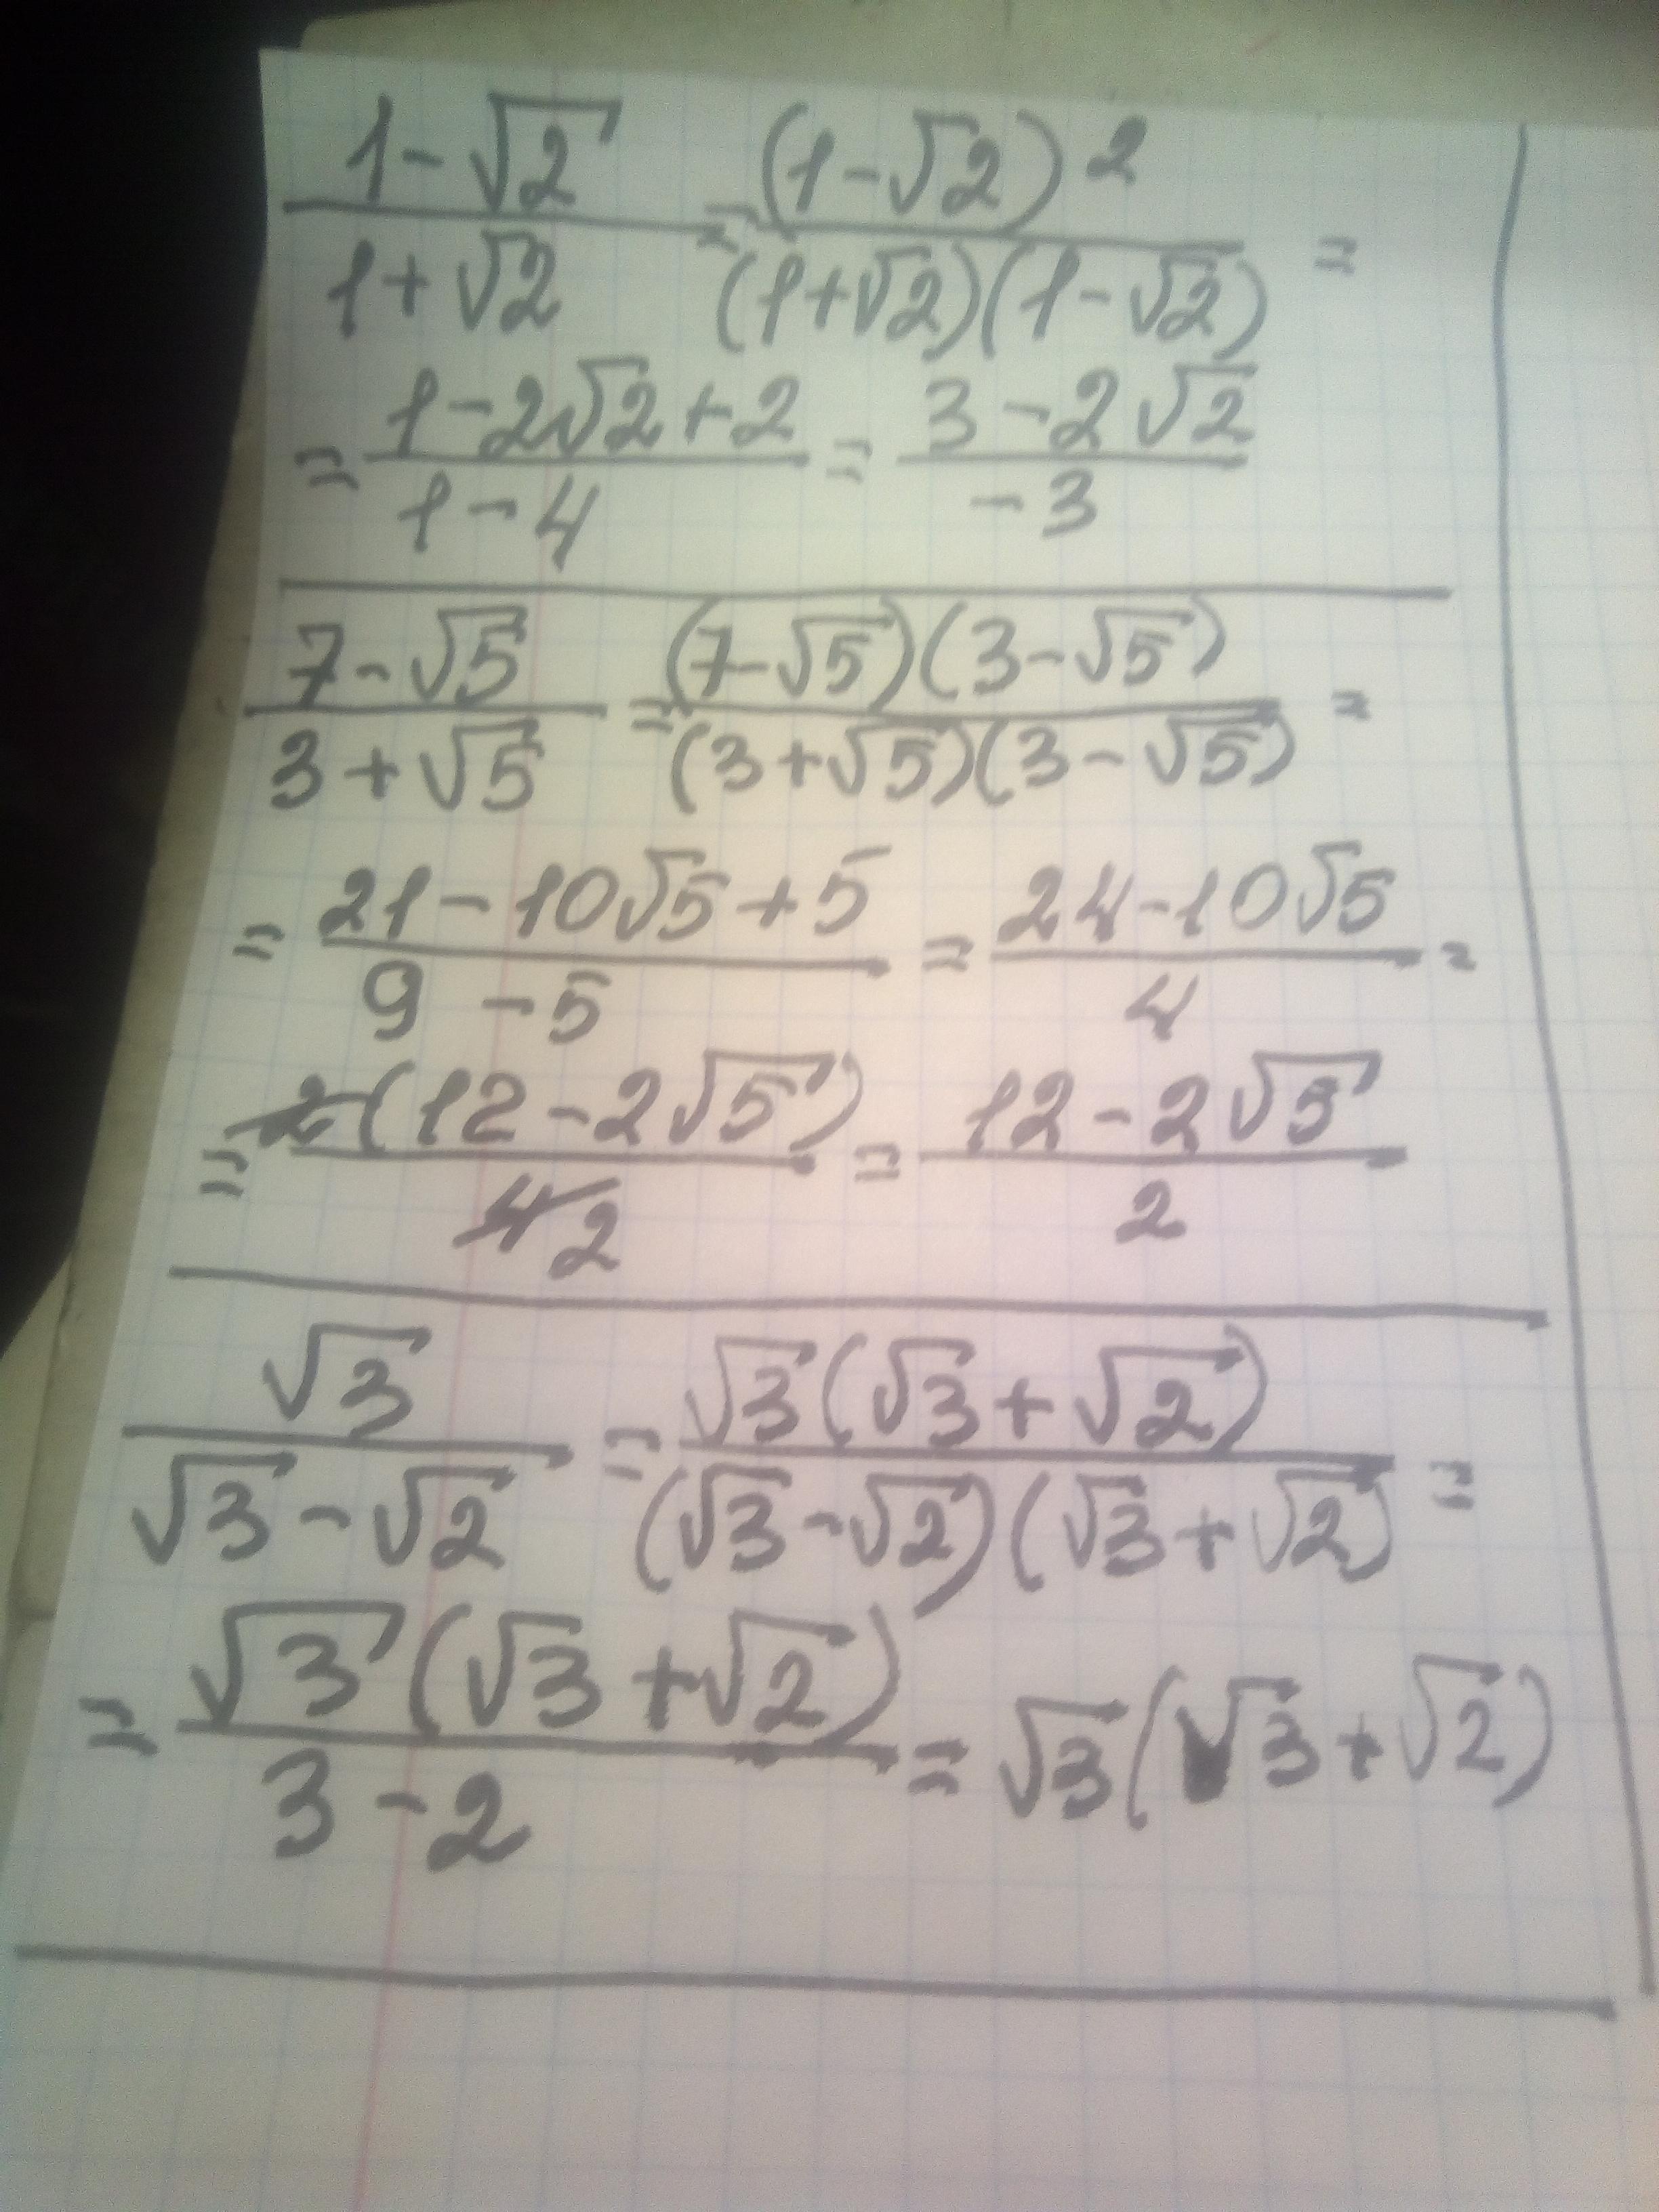 (1-√2)/(1+√2) = (1-√2)²/((1+√2)(1-√2)) =
= (1-2√2+2)/(1-4) = (3-2√2)/(-3)
(7-√5)/(3+√5) = ((7-√5)(3-√5))/((3+√5)(3-√5)) =
= (21-10√5+5)/(9-5) = (24-10√5)/4 =
= 2(12-2√5)/4 2 = (12-2√5)/2
√3/(√3-√2) = √3(√3+√2)/((√3-√2)(√3+√2)) =
= √3(√3+√2)/(3-2) = √3(√3+√2)